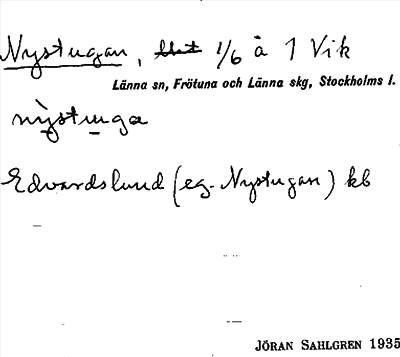 Nystugan, 1/6 å 1 Vik
Länna sn, Frötuna och Länna skg, Stockholms l.
nystuga
Edvardslund (eg. Nystugan) kb
JÖRAN SAHLGREN 1935